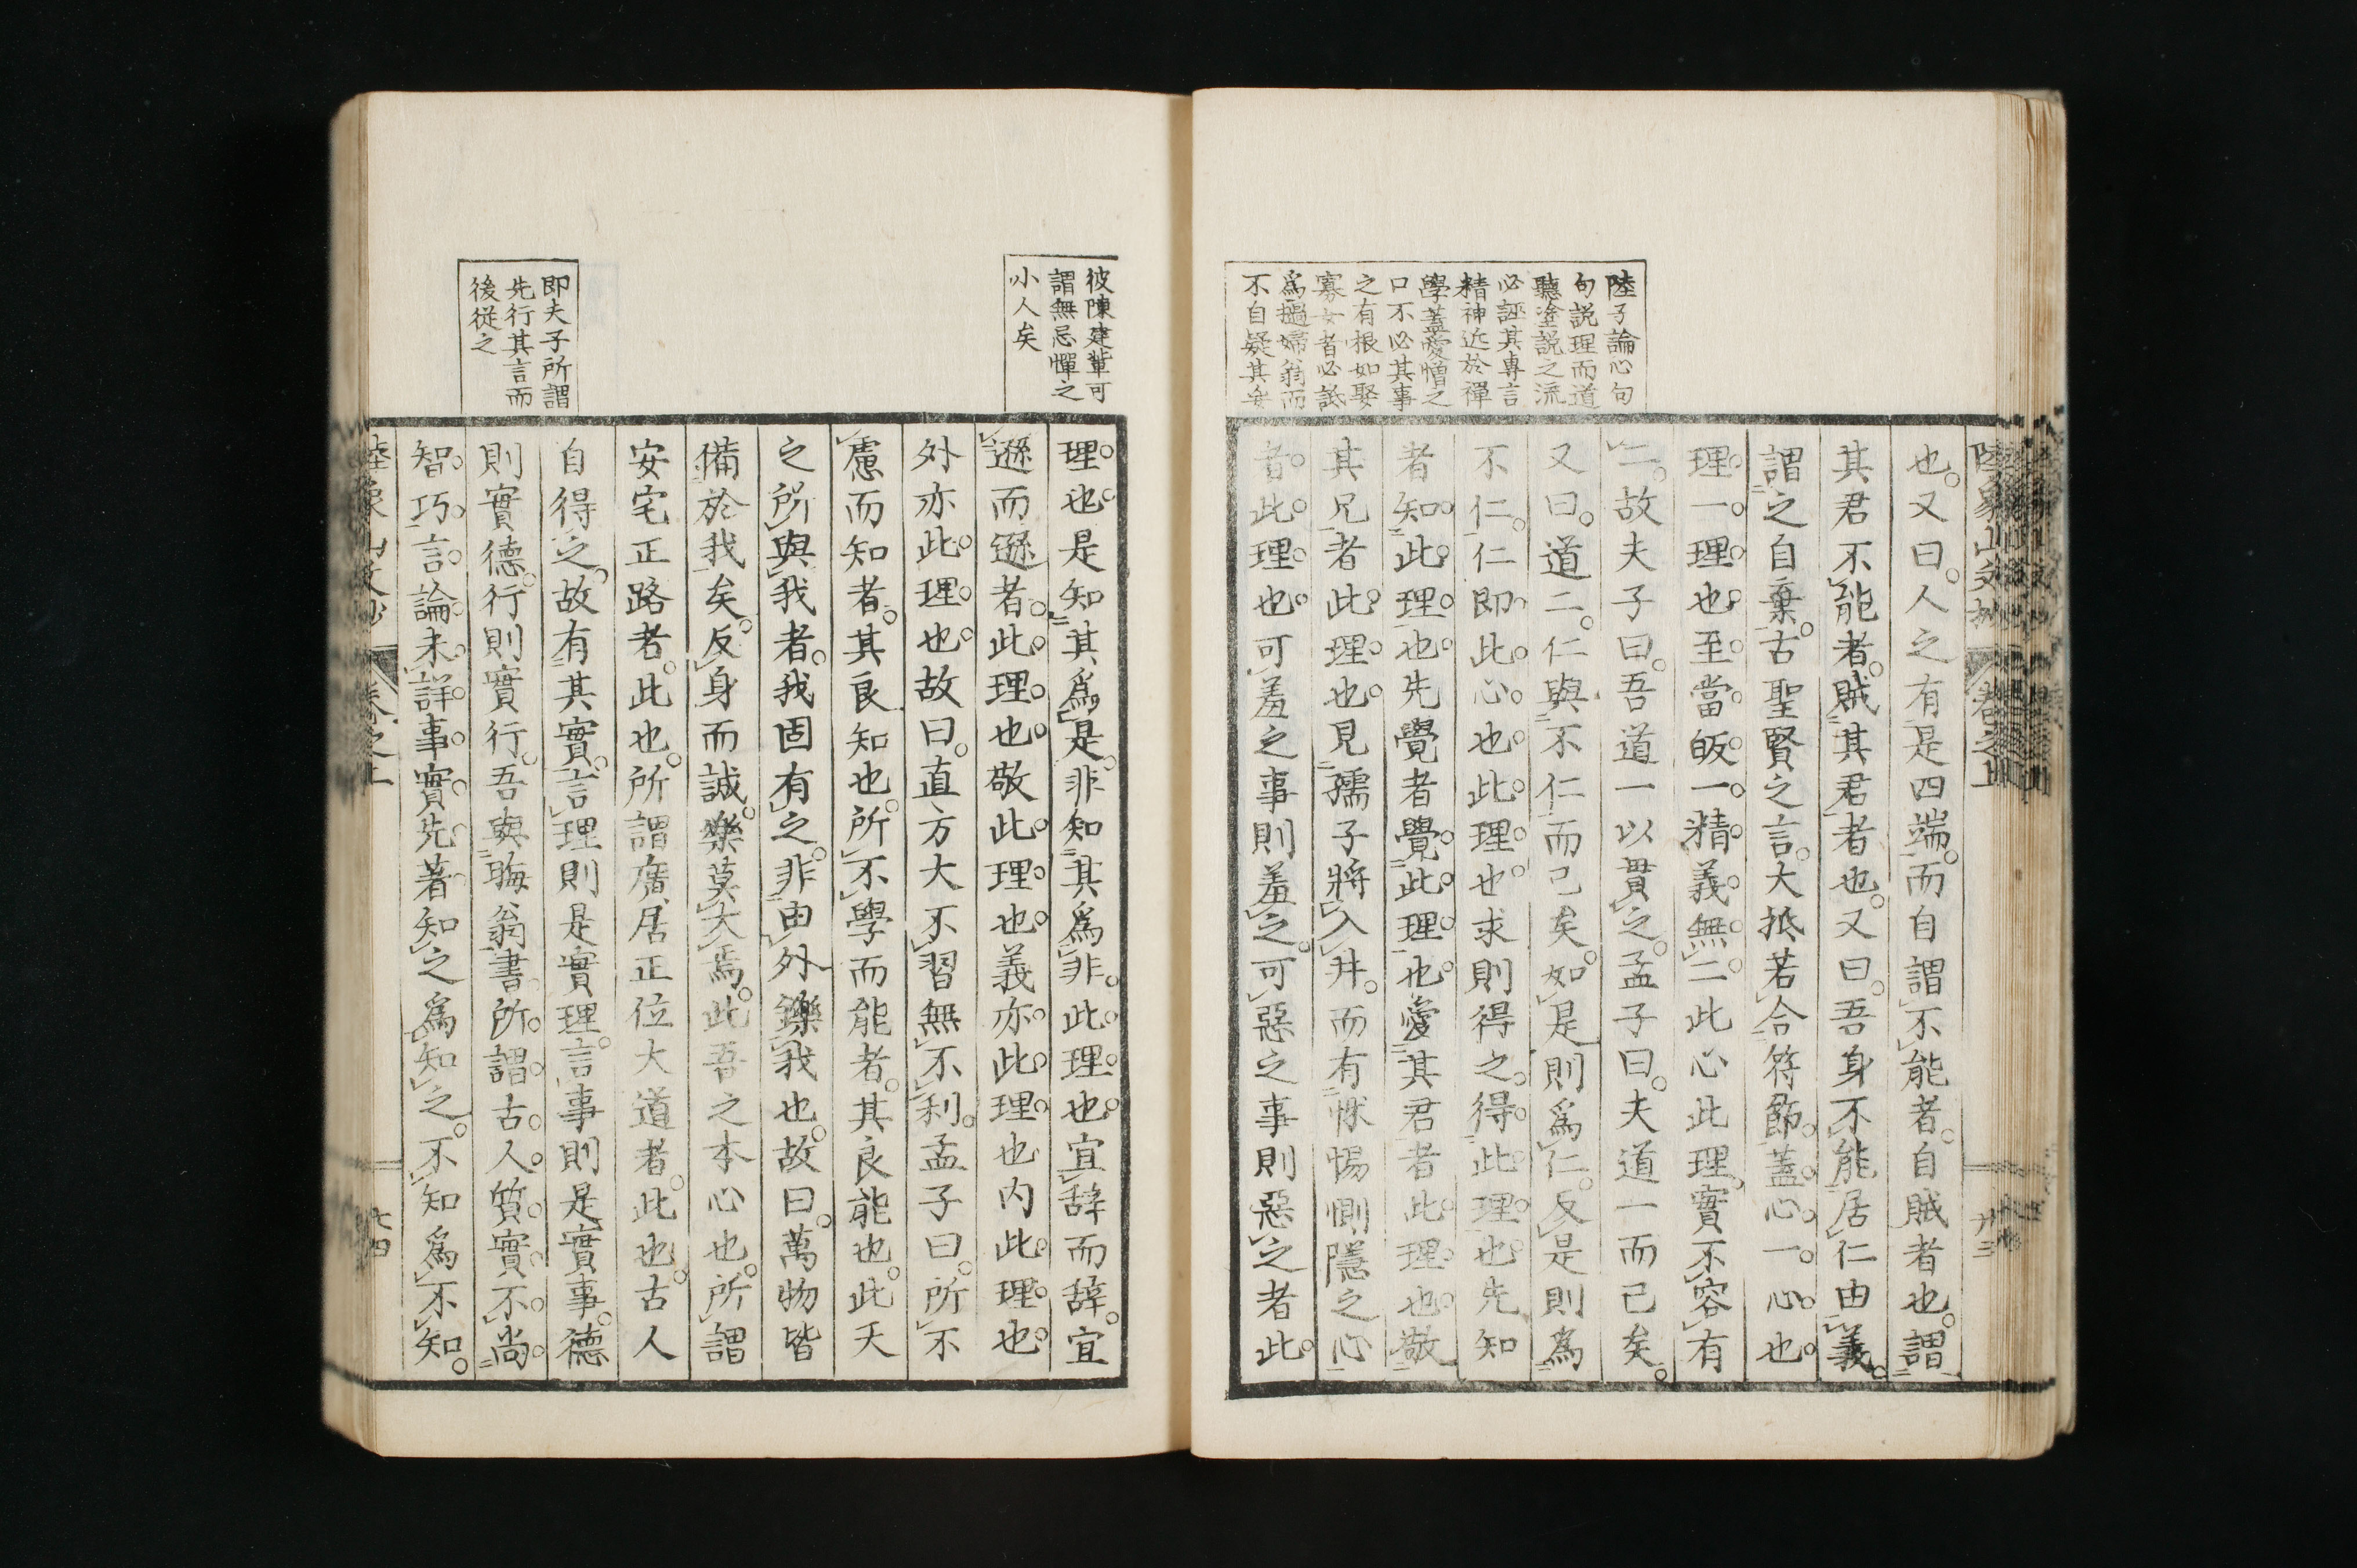 陸子論心句
句説理而道
聽塗説之流
必誣其專言
精神近於禪
學蓋愛憎之
口不必其事
之有根如娶
寡女者必詆
爲撾婦翁而
不自疑其妄
也。又曰。人之有是四端。而自謂不能者。自賊者也。謂
其君不能者。賊其君者也。又曰。吾身不能居仁由義。
謂之自棄。古聖賢之言。大抵若合符節。蓋心。一心也。
理。一理也。至當皈一。精義無二。此心此理。實不容有
二。故夫子曰。吾道一以貫之。孟子曰。夫道一而已矣。
又曰。道二。仁與不仁而已矣。如是則爲仁。反是則爲
不仁。仁即此心也。此理也。求則得之。得此理也。先知
者知此理也。先覺者覺此理也。愛其君者此理也。敬
其兄者此理也。見孺子將入井。而有怵惕惻隱之心
者。此理也。可羞之事則羞之。可惡之事則惡之者。此
陸象山文抄 卷之上 廿三
彼陳建輩可
謂無忌憚之
小人矣
即夫子所謂
先行其言而
後從之
理也。是知其爲是。非知其爲非。此理也。宜辭而辭。宜
遜而遜者。此理也。敬此理也。義亦此理也。内此理也。
外亦此理也。故曰。直方大。不習無不利。孟子曰。所不
慮而知者。其良知也。所不學而能者。其良能也。此天
之所與我者。我固有之。非由外鑠我也。故曰。萬物皆
備於我矣。反身而誠。樂莫大焉。此吾之本心也。所謂
安宅正路者。此也。所謂廣居正位大道者。此也。古人
自得之。故有其實。言理則是實理。言事則是實事。德
則實德。行則實行。吾與晦翁書。所謂古人質實。不尚
智巧。言論未詳。事實先著。知之爲知之。不知爲不知。
陸象山文抄 卷之上 廿四